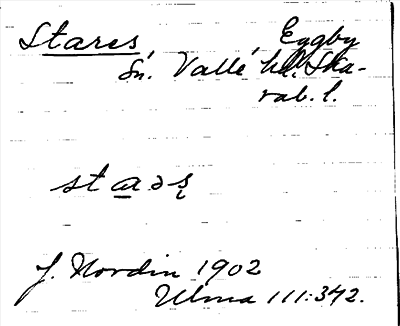 Stares, Eggby
Sn. Valle hd. Ska-
rab. l.
st a ə ʂ
J. Nordin 1902
Ulma 111:342.